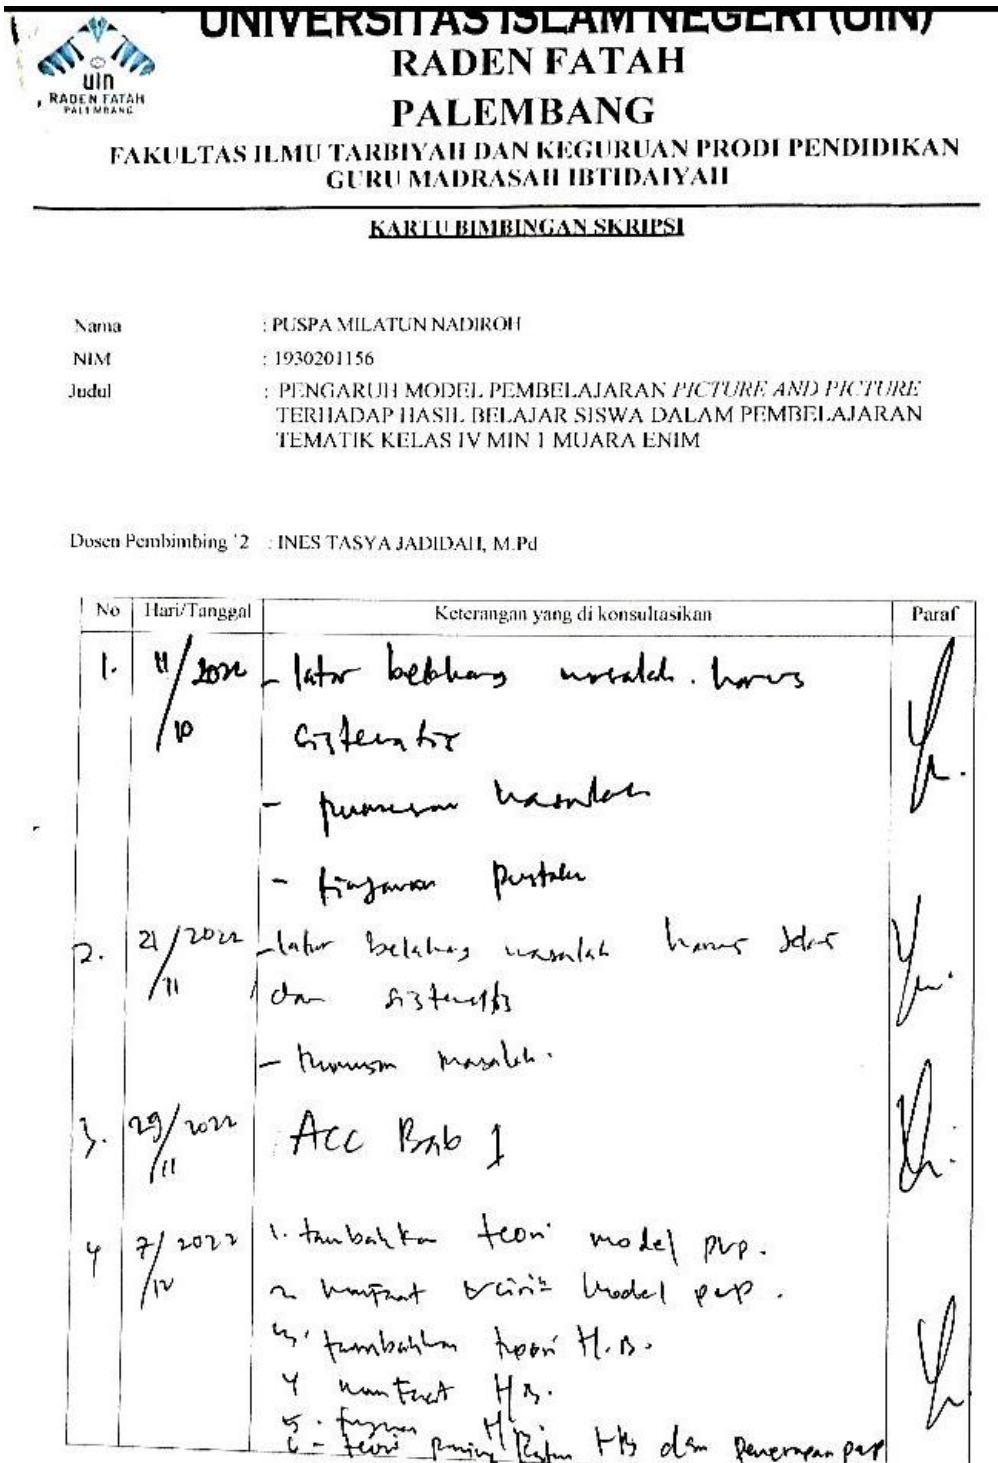 UNIVERSITAS ISLAM NEGERI (UIN)
RADEN FATAH
PALEMBANG
uin
RADEN FATAH
PALEMBANG
FAKULTAS ILMU TARBIYAH DAN KEGURUAN PRODI PENDIDIKAN
GURU MADRASAH IBTIDAIYAH
KARTU BIMBINGAN SKRIPSI
Nama : PUSPA MILATUN NADIROH
NIM : 1930201156
Judul : PENGARUH MODEL PEMBELAJARAN PICTURE AND PICTURE
TERHADAP HASIL BELAJAR SISWA DALAM PEMBELAJARAN
TEMATIK KELAS IV MIN 1 MUARA ENIM
Dosen Pembimbing 2 : INES TASYA JADIDAH, M.Pd
No Hari/Tanggal Keterangan yang di konsultasikan Paraf
1. 11/10 2022 - latar belakang masalah harus
sistematis
- masalah
- tinjauan pustaka
2. 21/11 2022 - latar belakang masalah harus jelas
dan sistematis
- rumusan masalah.
3. 29/11 2022 Acc Bab I
4 7/12 2022 1. tambahkan teori model pap.
2 manfaat model pap.
3. tambahkan teori H.B.
4 manfaat H.B.
5. tujuan H.B.
6 - teori HB dan penerapan pap